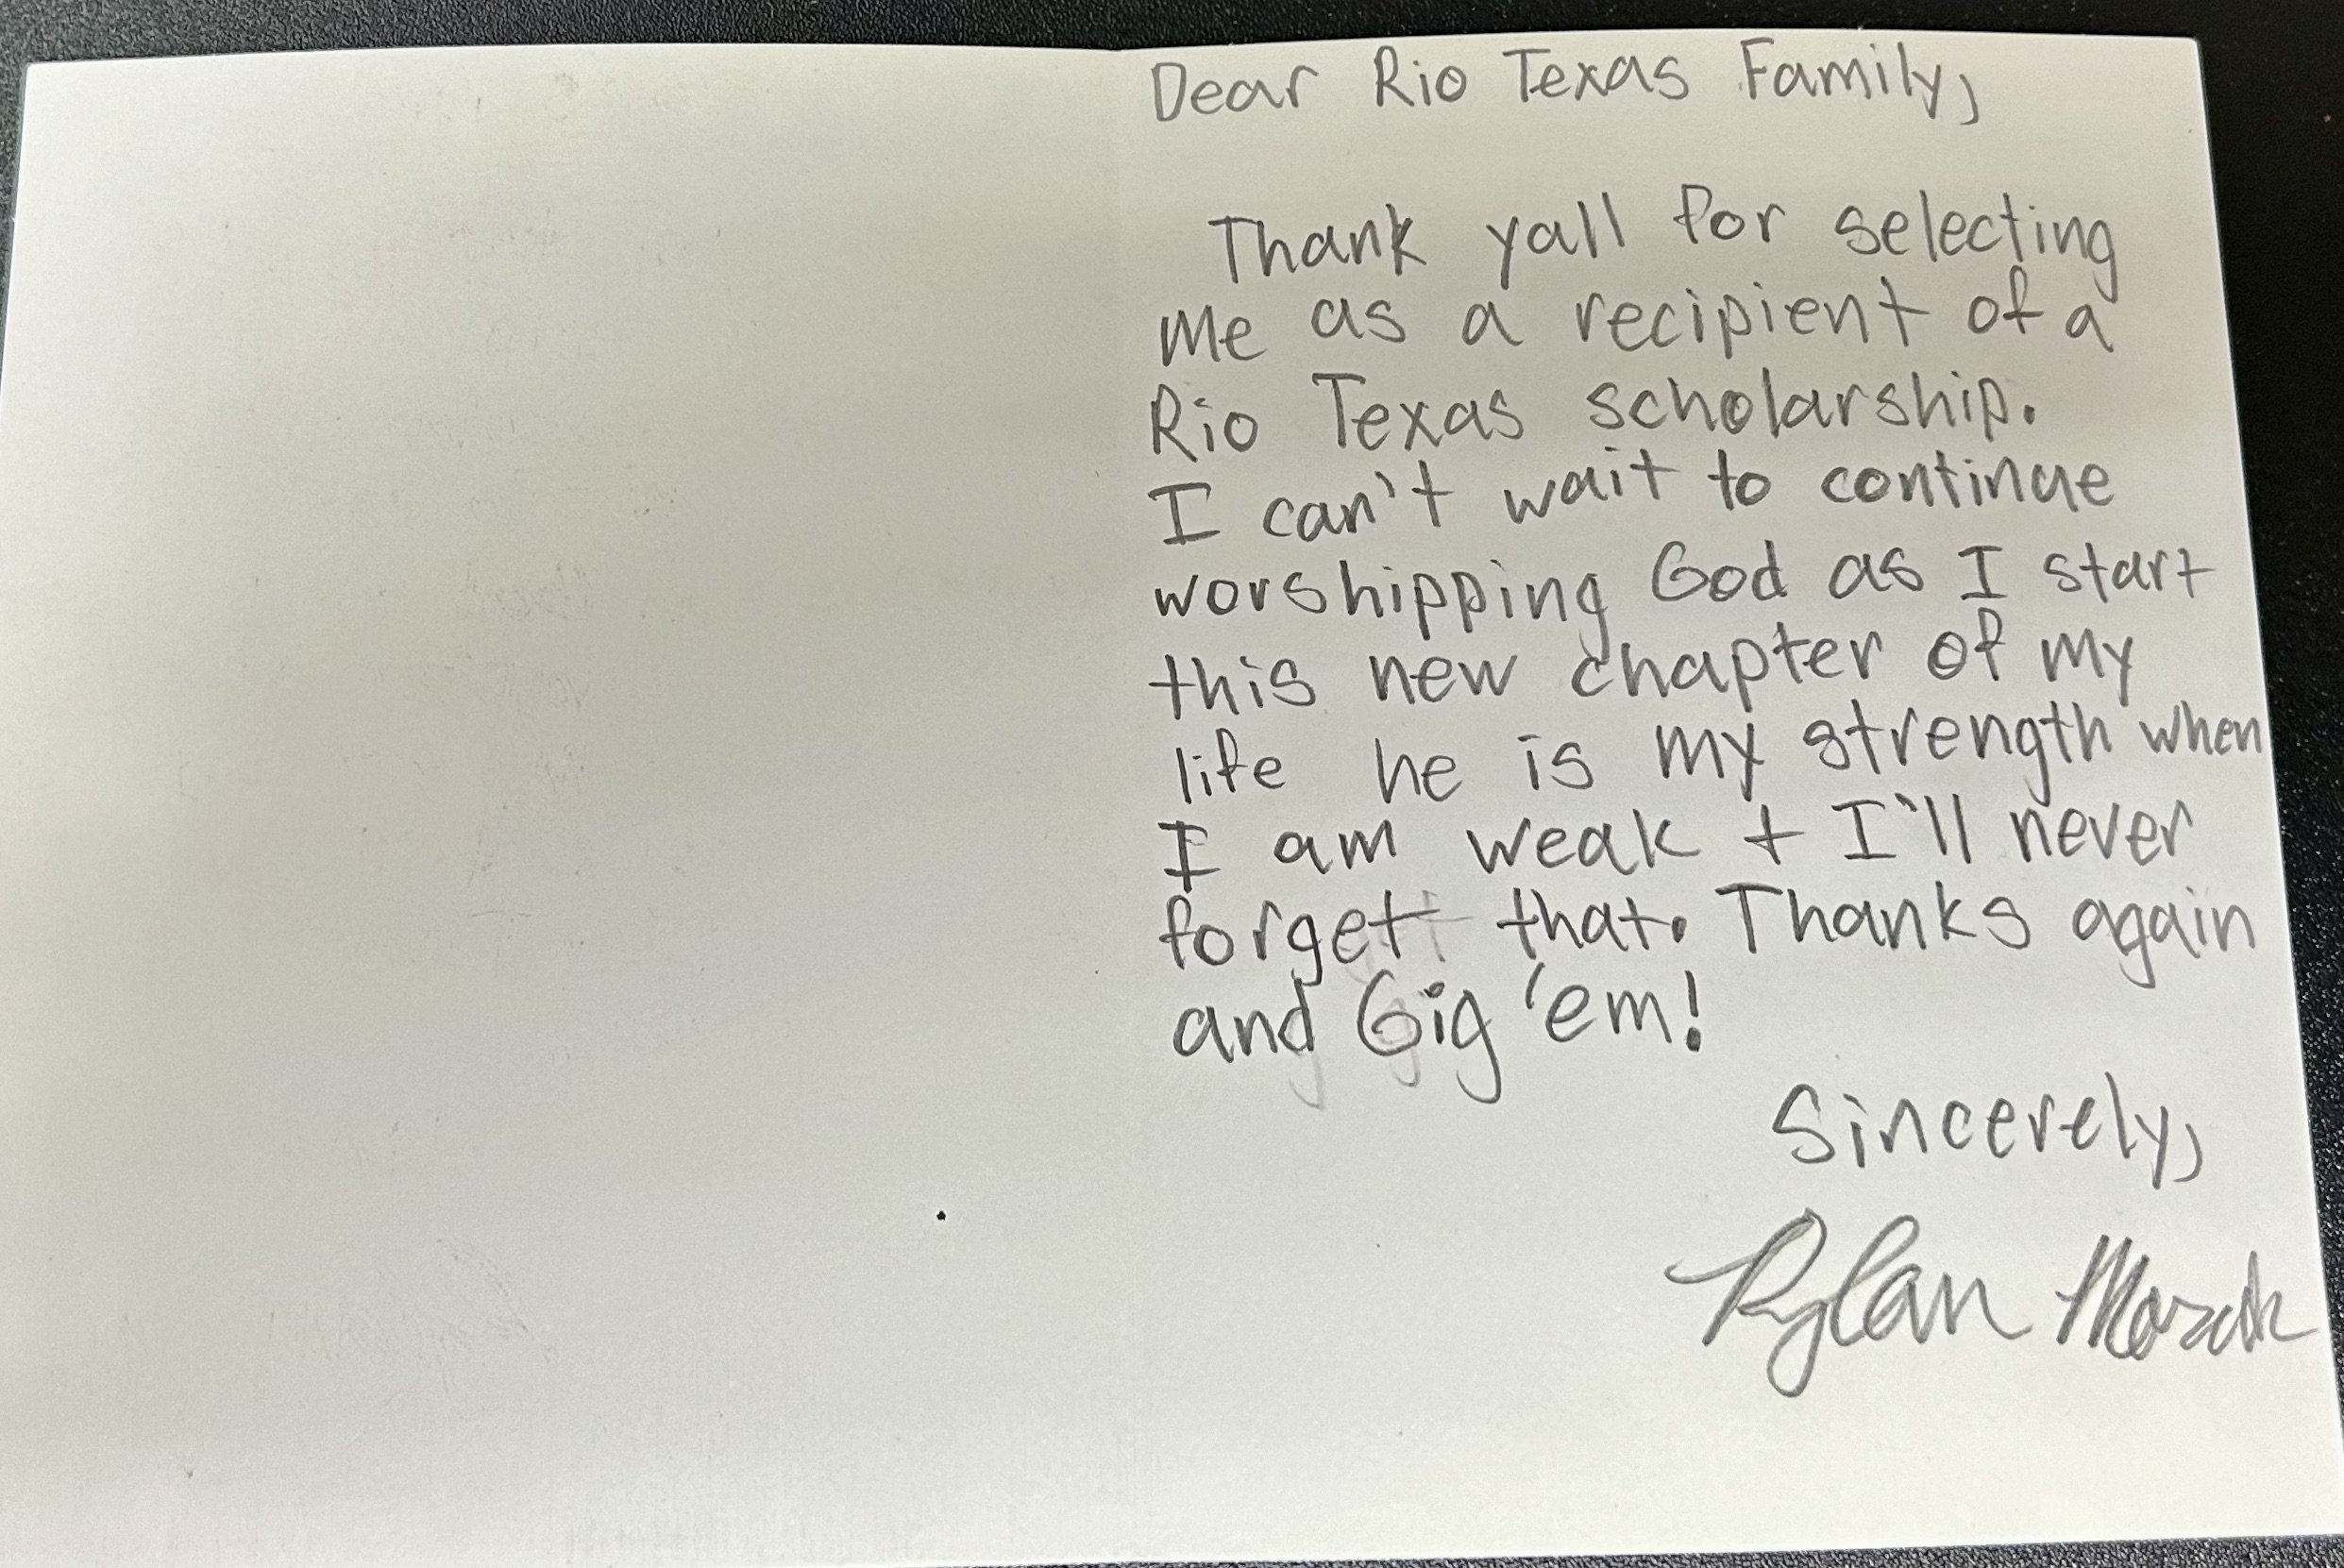 Dear Rio Texas Family,
Thank yall for selecting
me as a recipient of a
Rio Texas scholarship.
I can't wait to continue
worshipping God as I start
this new chapter of my
life he is my strength when
I am weak + I'll never
forget that. Thanks again
and Gig 'em!
Sincerely,
Rylan